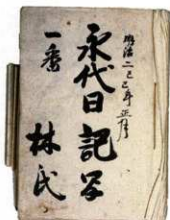 明治二己巳年正月
永代日記写
一番
林氏